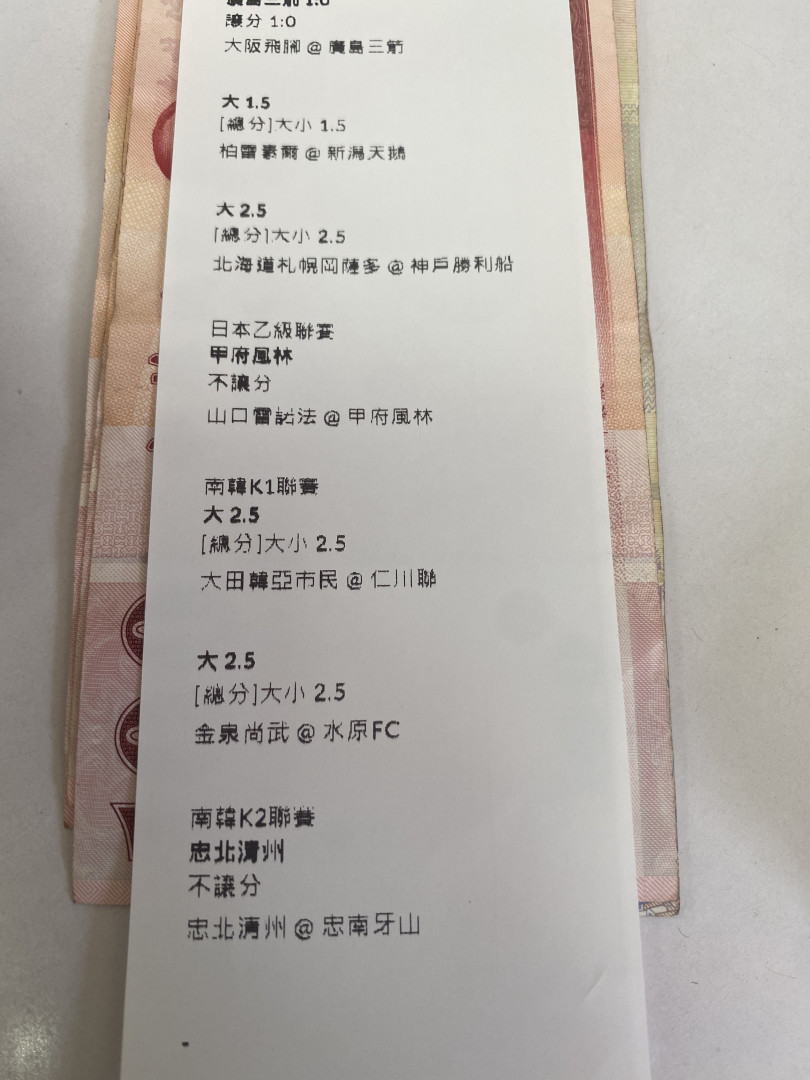 廣島三箭 1:0
讓分 1:0
大阪飛腳 @ 廣島三箭
大 1.5
[總分]大小 1.5
柏雷素爾 @ 新潟天鵝
大 2.5
[總分]大小 2.5
北海道札幌岡薩多 @ 神戶勝利船
日本乙級聯賽
甲府風林
不讓分
山口雷諾法 @ 甲府風林
南韓K1聯賽
大 2.5
[總分]大小 2.5
大田韓亞市民 @ 仁川聯
大 2.5
[總分]大小 2.5
金泉尚武 @ 水原FC
南韓K2聯賽
忠北清州
不讓分
忠北清州 @ 忠南牙山